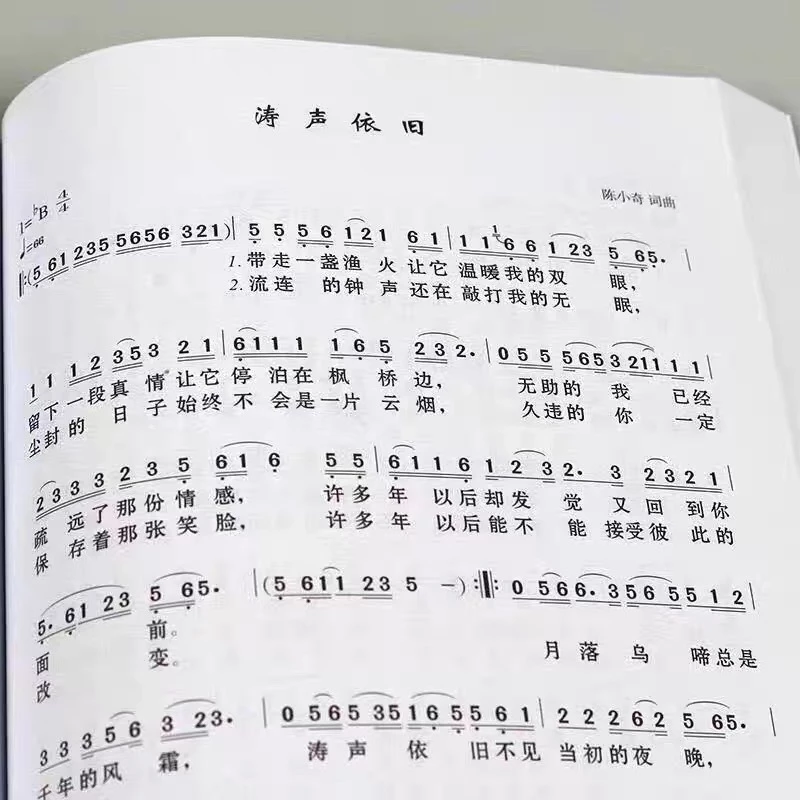 涛声依旧
陈小奇 词曲
1=♭B 4/4
♩=66
‖:(5 61 235 5656 321)| 5 5 5 6 121 6 1| 1 1 6 6 1 23 5 65.|
1. 带走一盏渔 火让它 温暖我的双 眼，
2. 流连 的钟 声还在 敲打我的无 眠，
1 1 1 2 353 2 1| 6111 165 232 2.| 0 5 5 565 3211 1 1|
留下一段真 情让它 停 泊在枫 桥边， 无助的 我 已经
尘封的 日 子始终不 会是一片 云烟， 久违的 你 一定
2333 323 235 616 6 5 5| 6116 123 2. 3 2321|
疏 远了那份情感， 许多年 以后却发 觉 又回到你
保 存着那张笑脸， 许多年 以后能不 能 接受彼此的
5. 61 23 5 65.| (5 611 23 5 -):‖: 0 566. 3565 512|
面 前。 月落乌 啼总是
改 变。
3 3 3 5 6 3 23.| 0 565 35 165 561| 2 2 2 62 5 65.|
千年的风 霜， 涛声 依 旧不见 当初的夜 晚，